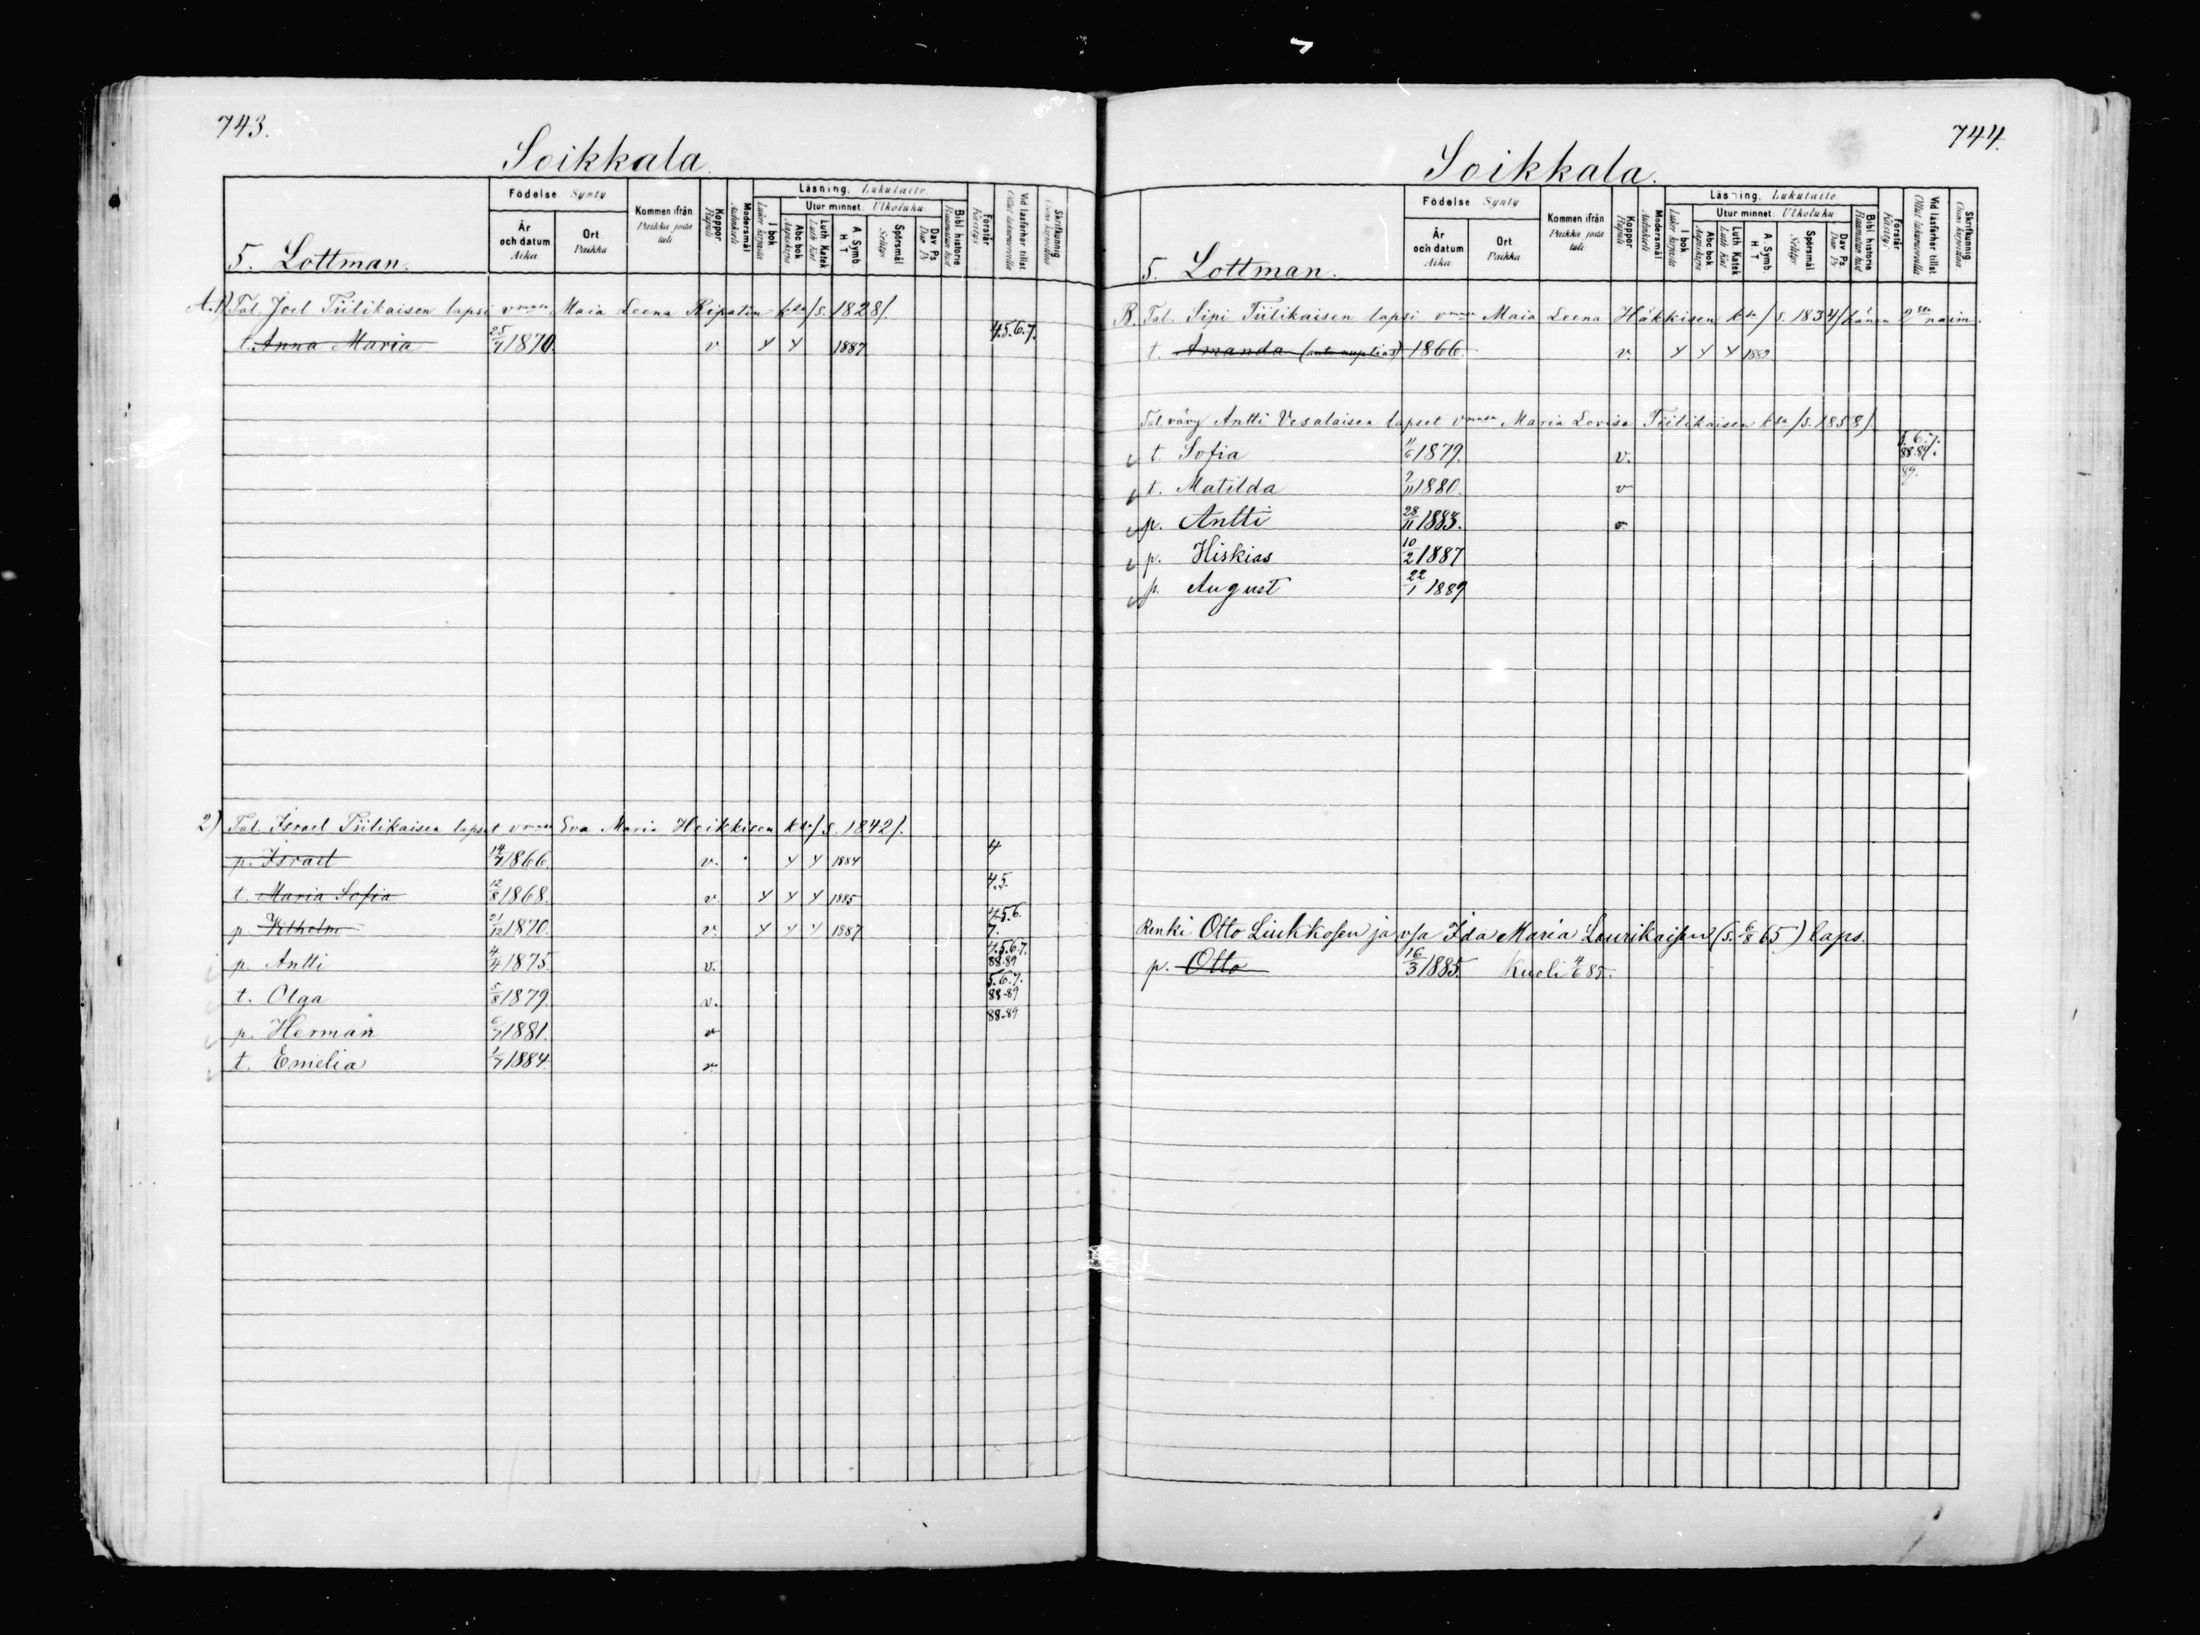 743.
Soikkala.
Födelse Synty
Kommen ifrån Paikka josta tuli
Koppor Rupuli
Modersmål
Läsning. Lukutaito.
Utur minnet. Ulkoluku.
I bok
Abc bok
Luth Katek
A. Symb. H. T.
Spörsmål Selitys
Dav Ps
Bibl historie
Förstår Käsitys
Vid läsförhör tillst
Skrifkunnig
År och datum Aika
Ort Paikka
5. Lottman.
A. 1) Tal. Joel Tiilikaisen lapsi vmosa Maia Leena Ripatin kssa /s. 1828/.
t. Anna Maria 25/7 1870. v. 1887 4.5.6.7.
2) Tal. Israel Tiilikaisen lapset vmosa Eva Maria Heikkisen kssa /s. 1842/.
p. Israel 14/7 1866. v. 1884 4
t. Maria Sofia 12/8 1868. v. 1885 4.5.
p. Vilhelm 21/12 1870. v. 1887 4.5.6. 7.
p. Antti 4/4 1875. v. 4.5.6.7. 88-89
t. Olga 5/8 1879. v. 5.6.7. 88-89
p. Herman 6/7 1881. v 88-89
t. Emelia 1/7 1884. v.
744.
Soikkala.
Födelse Synty
Kommen ifrån Paikka josta tuli
Koppor Rupuli
Modersmål
Läsning. Lukutaito
Utur minnet. Ulkoluku
I bok
Abc bok
Luth Katek
A. Symb. H. T.
Spörsmål Selitys
Dav Ps
Bibl historie
Förstår Käsitys
Vid läsförhör tillst
Skrifkunnig
År och datum Aika
Ort Paikka
5. Lottman.
B. Tal. Sipi Tiilikaisen lapsi vmosa Maia Leena Häkkisen kssa /s. 1834/ hänen 2ssa naim.
t. Amanda 1866. v. 1882
Tal. vävy Antti Vesalaisen lapset vmosa Maria Lovisa Tiilikaisen kssa /s. 1858/.
t. Sofia 11/6 1879. v. 5.6.7. 88.89.
t. Matilda 9/11 1880. v 89.
p. Antti 28/11 1883. v
p. Hiskias 10/2 1887
p. August 22/1 1889
Renki Otto Liukkosen ja vsa Ida Maria Laurikaisen (s. 6/8 65) laps.
p. Otto 16/3 1885. Kuoli 4/6 85.